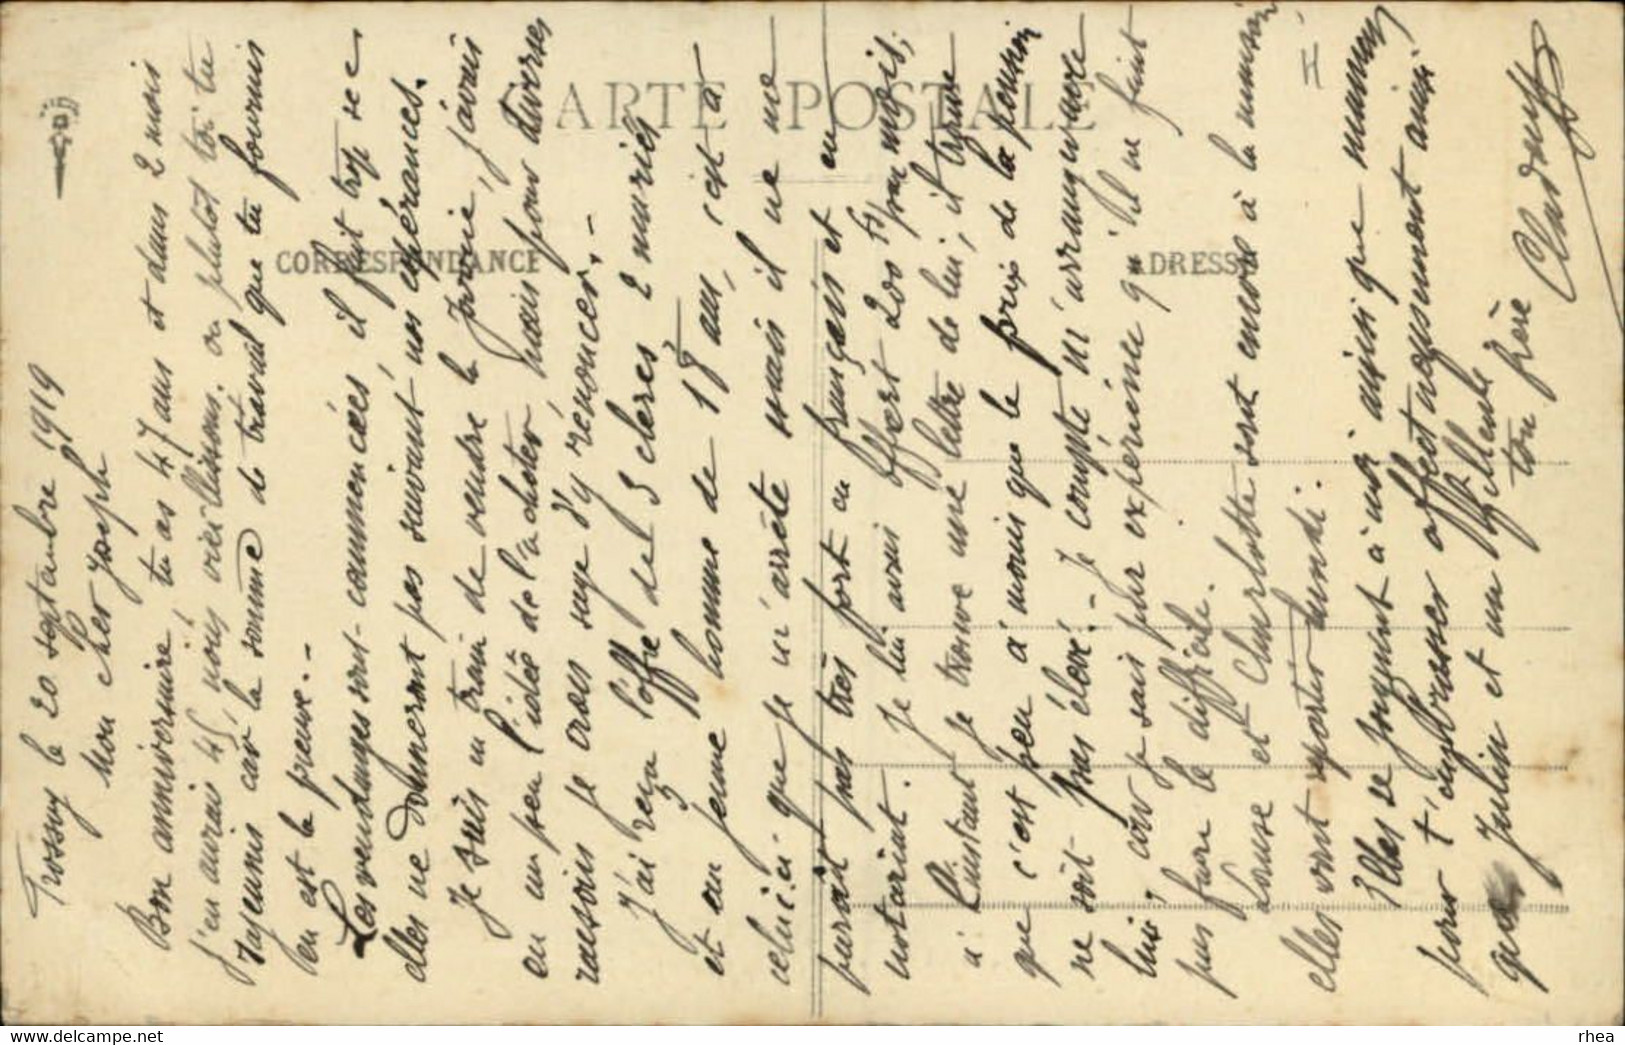 CARTE POSTALE
CORRESPONDANCE
ADRESSE
Trossy le 20 septembre 1919
Mon cher Joseph
Bon anniversaire, tu as 47 ans et dans 2 mois
j'en aurais 45, nous vieillissons. ou plutôt toi tu
rajeunis car la somme de travail que tu fournis
en est la preuve. -
Les vendanges sont commencées, il fait trop sec
elles ne donneront pas suivant nos espérances.
Je suis en train de vendre la , j'avais
eu un peu l'idée de l'acheter mais pour diverses
raisons je crois sage d'y renoncer. -
J'ai reçu l'offre de 3 clercs 2 mariés
et un jeune homme de 18 ans, c'est à
celui-ci que je m'arrête mais il ne me
parait pas très fort en français et en
notariat. Je lui avais offert 200 f par mois;
à l'instant je trouve une lettre de lui, il trouve
que c'est peu à moins que le prix de la pension
ne soit pas élevé. - Je compte m'arranger avec
lui, car je sais par expérience qu'il ne faut
pas faire le difficile.
Louise et Charlotte sont encore à la maison
elles vont repartir lundi.
Elles se joignent à moi ainsi que maman
pour t'embrasser affectueusement ainsi
que Julia et
ton frère
II
rhea